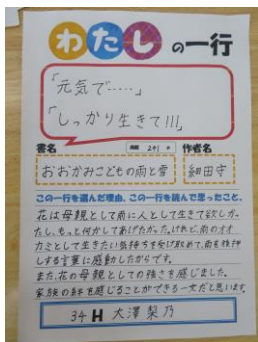 わたしの一行
「元気で……」
「しっかり生きて!!!」
書名 241 作者名
おおかみこどもの雨と雪 細田守
この一行を選んだ理由、この一行を読んで思ったこと。
花は母親として雨に人として生きて欲しか
たし、もっと何かしてあげたかた。けれど、雨のオオ
カミとして生きたい気持ちを受け取めて、雨を後押
しする言葉に感動したからです。
また、花の母親としての強さを感じました。
家族の絆を感じることができる一文だと思います。
34H 大澤梨乃